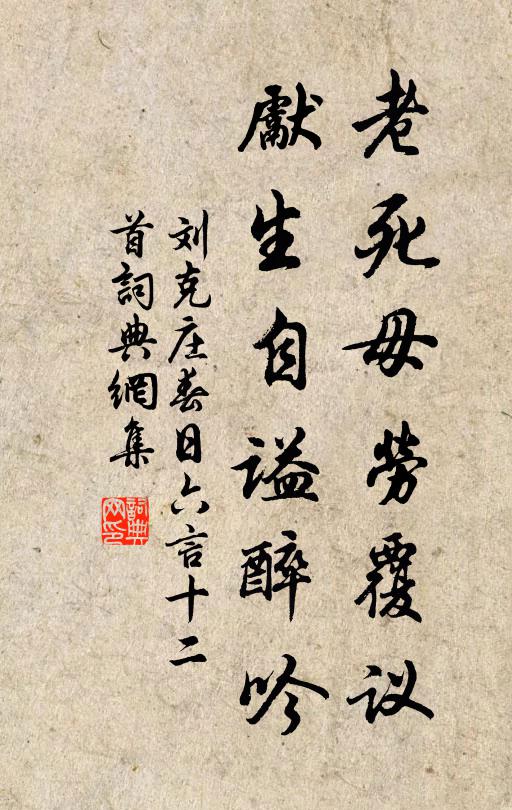 老死毋勞覆议
獻生自谥醉吟
刘克庄春日六言十二
首詞典網集
詞典
网印